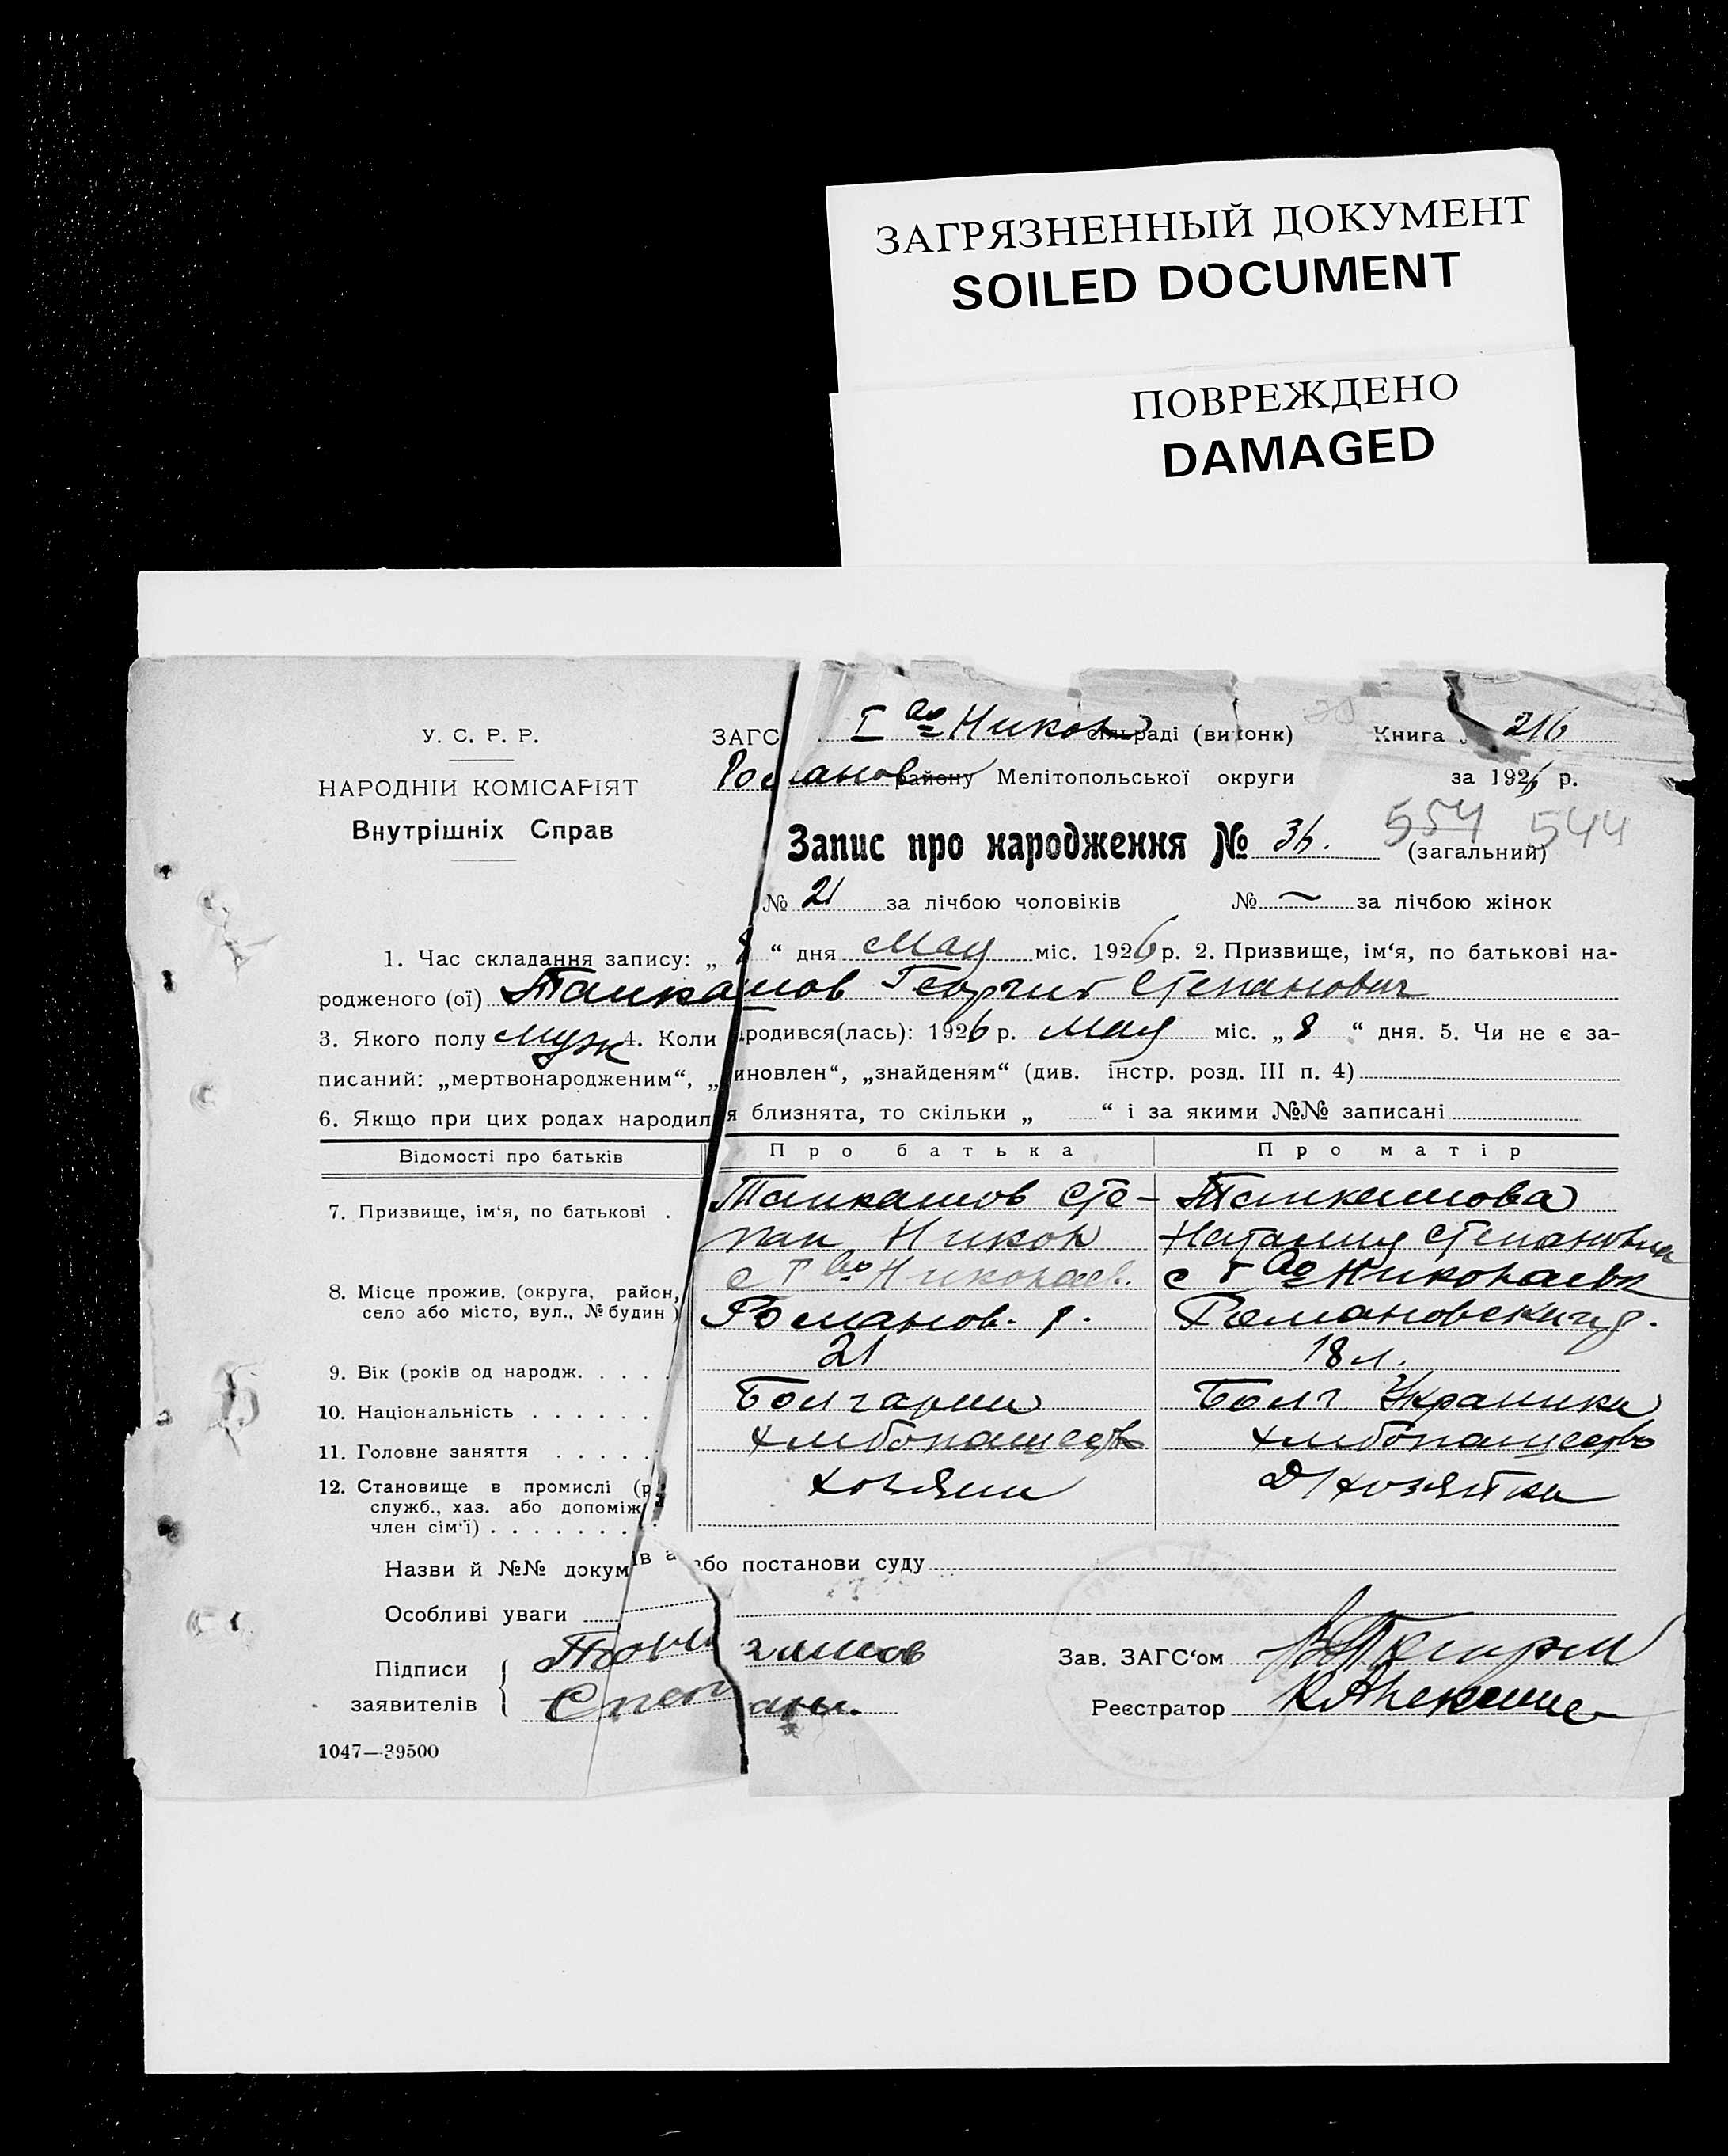 ЗАГРЯЗНЕННЫЙ ДОКУМЕНТ
SOILED DOCUMENT
ПОВРЕЖДЕНО
DAMAGED
У. С. Р. Р.
НАРОДНІЙ КОМІСАРІЯТ
Внутрішніх Справ
ЗАГС І во Никол сільраді (виконк) Книга 216
Романов району Мелітопольської округи за 1926 р.
Запис про народження № 36. 554 544
(загальний)
№ 21 за лічбою чоловіків № — за лічбою жінок
1. Час складання запису: „ 8 “ дня Мая міс. 1926 р. 2. Призвище, ім‘я, по батькові на-
родженого (ої) Танкашов Георгий Степанович
3. Якого полу муж 4. Коли народився(лась): 1926 р. Мая міс. „ 8 “ дня. 5. Чи не є за-
писаний: „мертвонародженим“, „ иновлен“, „знайденям“ (див. інстр. розд. III п. 4)
6. Якщо при цих родах народил я близнята, то скільки „ “ і за якими №№ записані
Відомості про батьків
Про батька Про матір
7. Призвище, ім‘я, по батькові .
Танкашов Сте-
пан Никол
Танкашова
Наталия Степановна
8. Місце прожив. (округа, район,
село або місто, вул., № будин )
с І во Николаев.
Романов. р.
с І во Николаевк
Романовский р.
9. Вік (років од народж. . . . . 21 18 л.
10. Національність . . . . . . Болгарин Болг Украинка
11. Головне заняття . . . . . хлибопашеств хлибопашество
12. Становище в промислі (р
служб., хаз. або допоміж
член сім‘ї) . . . . . . . .
хозяин Д/хозяйка
Назви й №№ докум ів а або постанови суду
Особливі уваги
Підписи
заявителів
Степ аны.
Зав. ЗАГС‘ом
Реєстратор
1047—39500